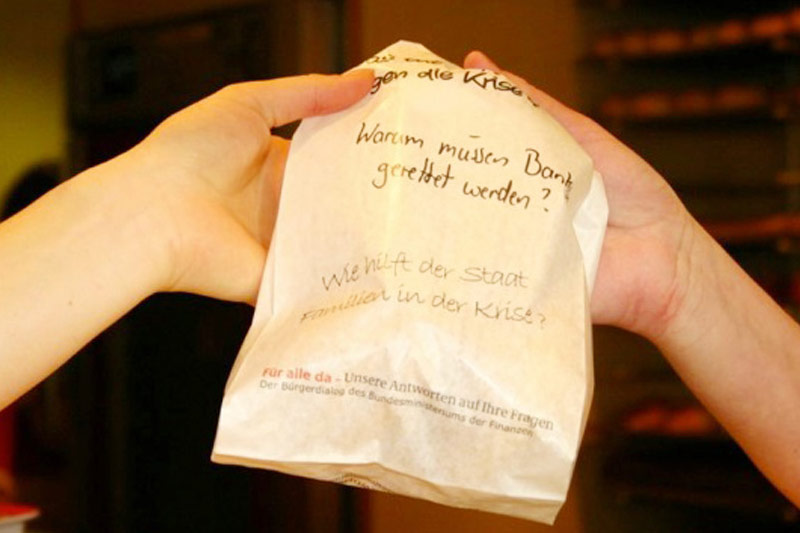 gen die Krise?
Warum müssen Bank
gerettet werden?
Wie hilft der Staat
Familien in der Krise?
Für alle da – Unsere Antworten auf Ihre Fragen
Der Bürgerdialog des Bundesministeriums der Finanzen